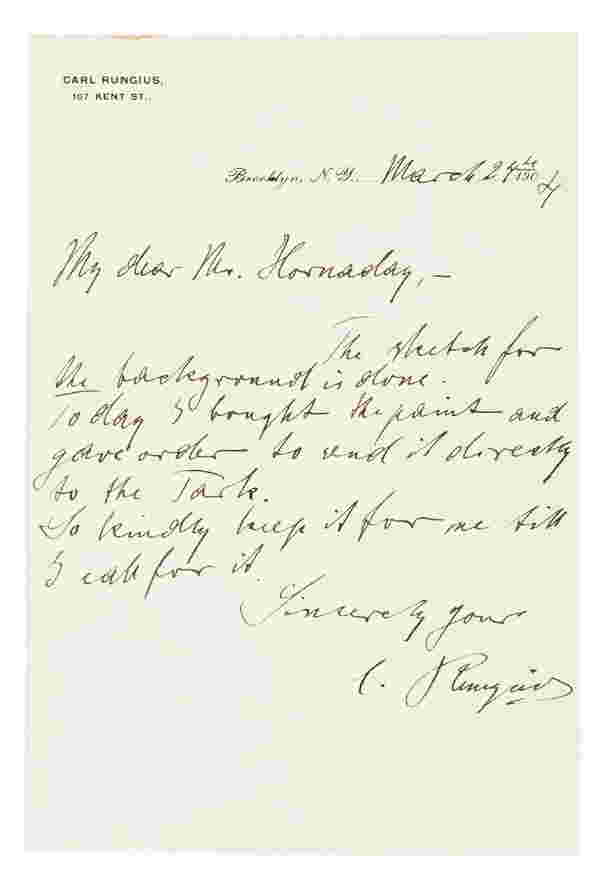 CARL RUNGIUS,
167 KENT ST.,
Brooklyn, N.Y., March 24th 1904
My dear Mr. Hornaday, —
The sketch for
the background is done.
Today I bought the paint and
gave order to send it directly
to the Park.
So kindly keep it for me till
I call for it.
Sincerely yours
C. Rungius